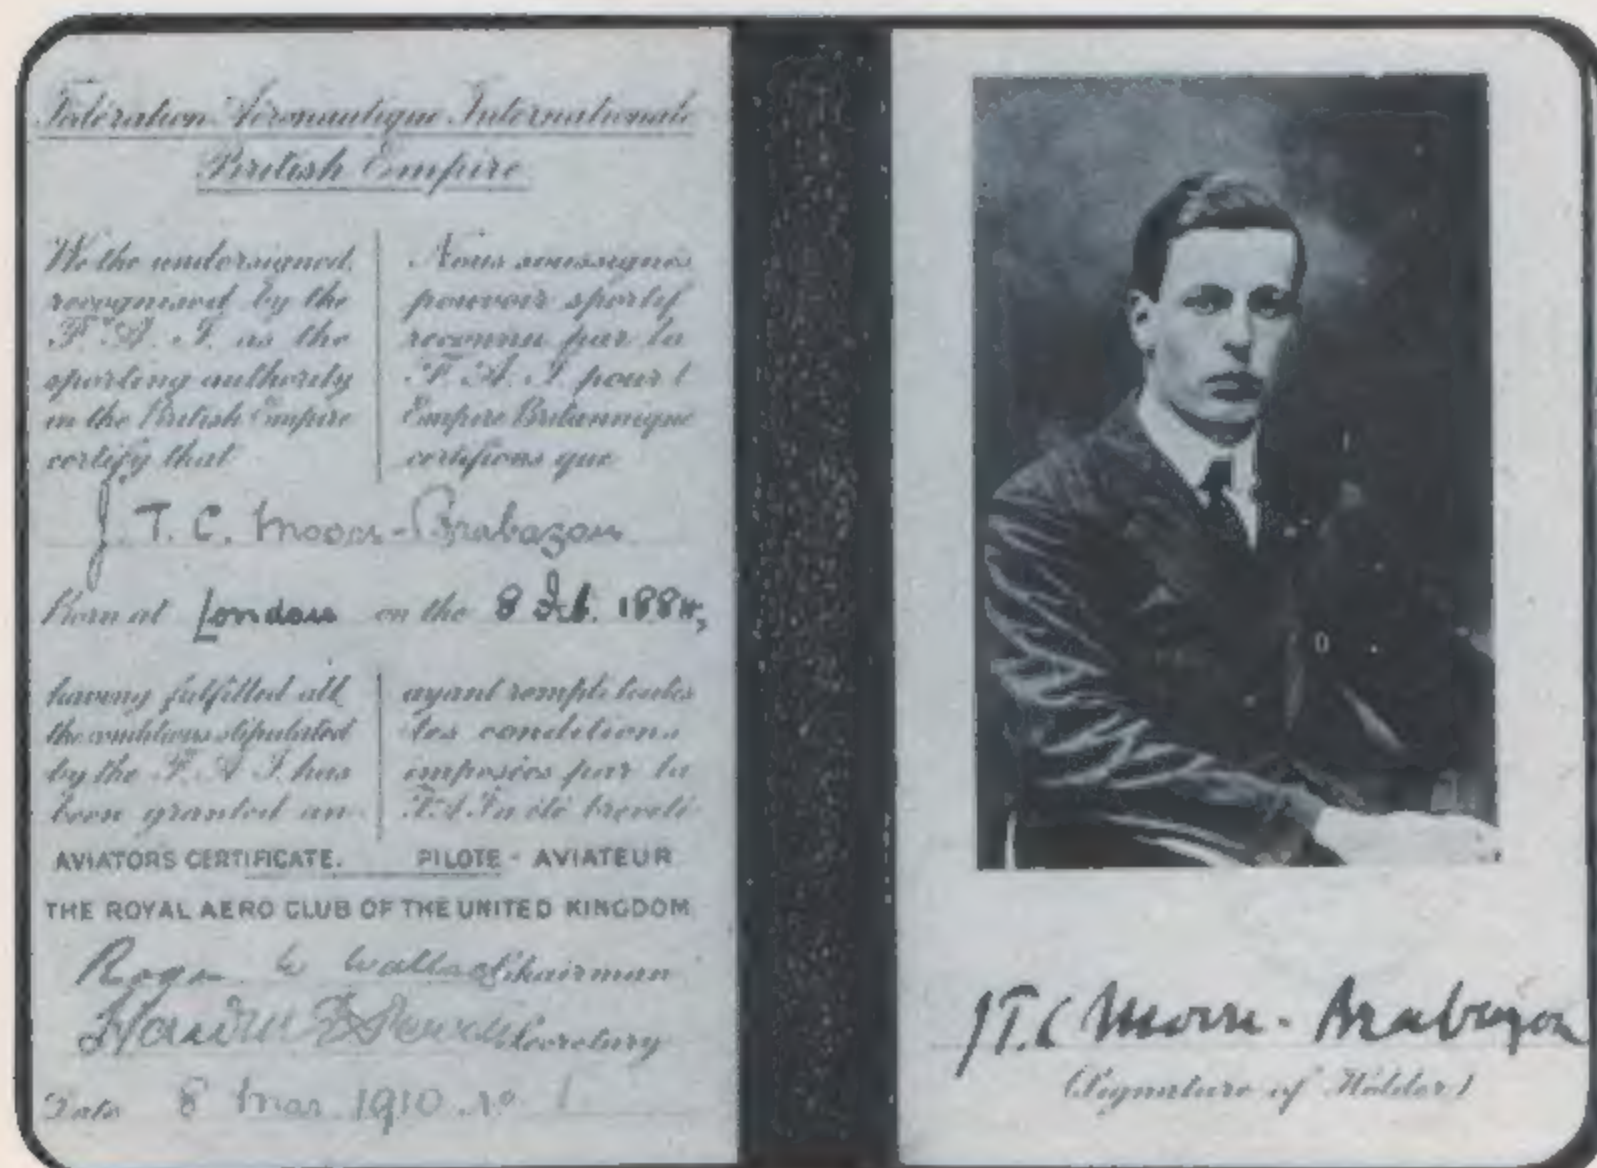 Fédération Aéronautique Internationale
British Empire
We the undersigned
recognised by the
F. A. I. as the
sporting authority
in the British Empire
certify that
Nous soussignés
pouvoir sportif
reconnu par la
F. A. I. pour l
Empire Britannique
certifions que
J. T. C. Moore-Brabazon
Born at London on the 8 Feb. 1884,
having fulfilled all
the conditions stipulated
by the F. A. I. has
been granted an
ayant rempli toutes
les conditions
imposées par la
F.A.I. a été breveté
AVIATORS CERTIFICATE. PILOTE - AVIATEUR
THE ROYAL AERO CLUB OF THE UNITED KINGDOM
Roger W Wallace Chairman
Secretary
Date 8 Mar 1910 No 1
J T. C Moore-Brabazon
(Signature of Holder)